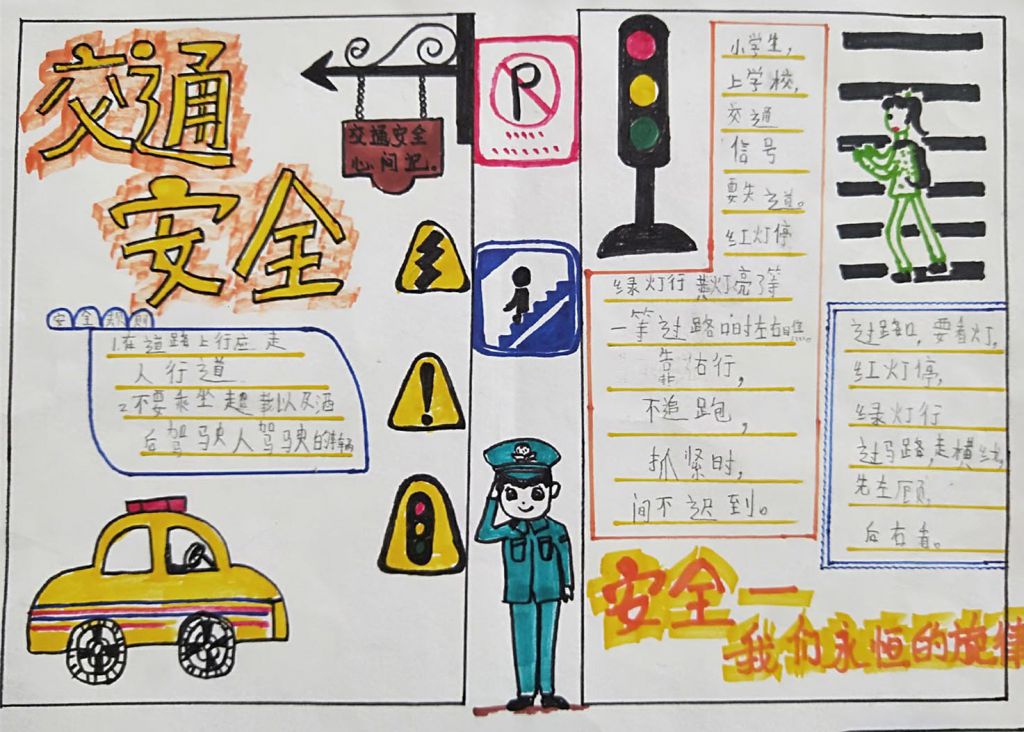 交通
安全
交通安全
心间记。
P
安全规则
1.在道路上行应走
人行道
2.不要乘坐超载以及酒
后驾驶人驾驶的车辆
小学生,
上学校,
交通
信号
要先知道。
红灯停
绿灯行 黄灯亮了等
一等过路口时左右
靠右行,
不追跑,
抓紧时,
间不迟到。
过路口,要看灯,
红灯停,
绿灯行
过马路,走横线
先左顾
后右看。
安全一
我们永恒的旋律